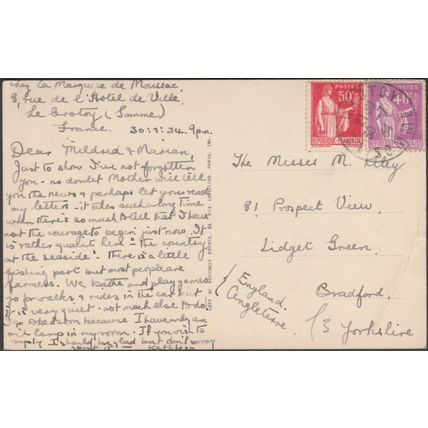 chez la Marquise de Moussac
8, rue de l'Hotel de Ville,
Le Crotoy (Somme)
France.
30:7:34. 9pm.
Dear Mildred & Marian,
Just to show I've not forgotten
you - no doubt Mother will tell
you the news & perhaps let you read
my letter - it takes such a long time
when there's so much to tell that I have
not the courage to begin just now. It
is rather quaint here "the country
at the seaside". There is a little
fishing part but most people are
farmers. We bathe and play games
go for walks & rides in the car but
it is very quiet - not much else to do.
because I have only an
oil lamp in my room. If you
reply I should be glad but don't worry
about it
Kathleen
The Misses M.
81 Prospect View,
Lidget Green,
Bradford,
Yorkshire
England.
Angleterre
POSTES
50c
REPUBLIQUE FRANÇAISE
POSTES
40c